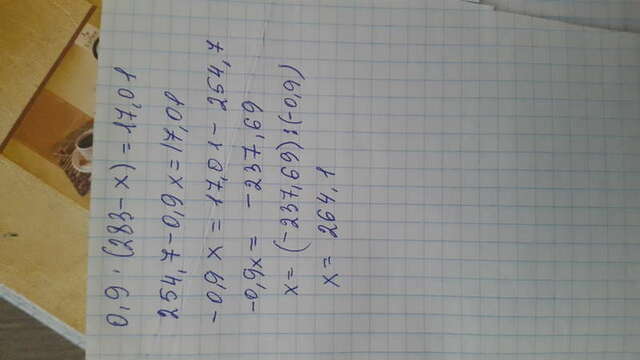 0,9 · (283 - x) = 17,01
254,7 - 0,9x = 17,01
-0,9x = 17,01 - 254,7
-0,9x = -237,69
x = (-237,69) : (-0,9)
x = 264,1